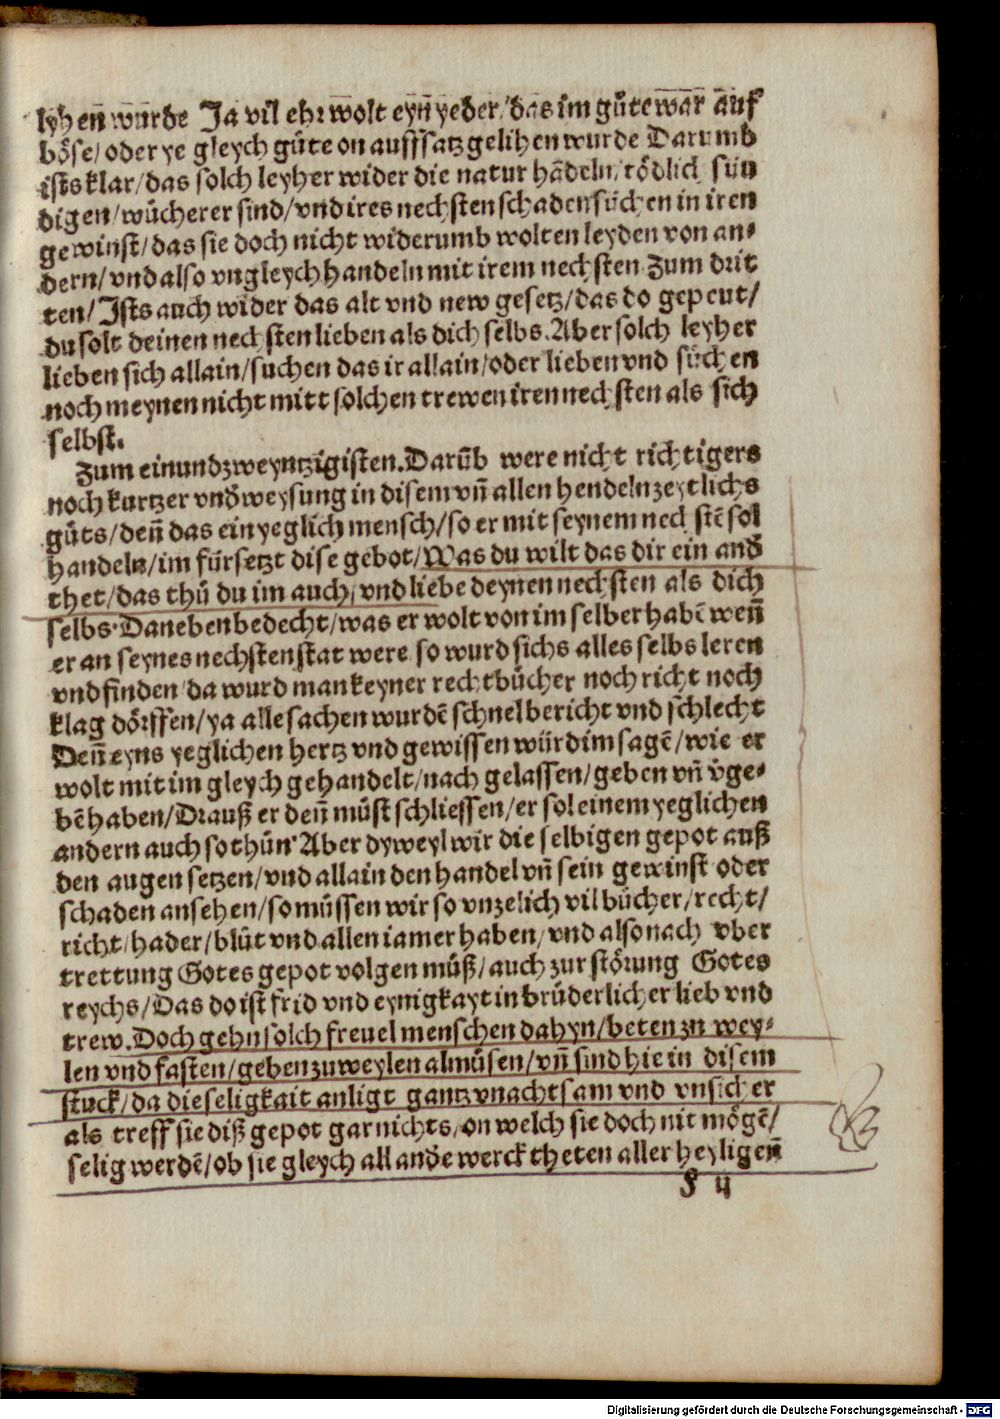 lyhen wurde Ja vil ehr wolt eyn̄ yeder/das im gůte war auf
böse/oder ye gleych gůte on auffsatz gelihen wurde Darumb
ists klar/das solch leyher wider die natur hādeln/tödlich sün
digen/wůcherer sind/vnd ires nechsten schaden sůchen in iren
gewinst/das sie doch nicht widerumb wolten leyden von an⸗
dern/vnd also vngleych handeln mit irem nechsten Zum drit
ten/Ists auch wider das alt vnd new gesetz/das do gepeut/
du solt deinen nechsten lieben als dich selbs.Aber solch leyher
lieben sich allain/suchen das ir allain/oder lieben vnd sůchen
noch meynen nicht mitt solchen trewen iren nechsten als sich
selbst.
Zum einundzweyntzigisten.Darūb were nicht richtigers
noch kurtzer vnd̄weysung in disem vn̄ allen hendeln zeytlichs
gůts/den̄ das ein yeglich mensch/so er mit seynem nechstē sol
handeln/im fürsetzt dise gebot/Was du wilt das dir ein and̄
thet/das thů du im auch/vnd liebe deynen nechsten als dich
selbs.Daneben bedecht/was er wolt von im selber habē wen̄
er an seynes nechsten stat were so wurd sichs alles selbs leren
vnd finden/da wurd man keyner rechtbůcher noch richt noch
klag dörffen/ya alle sachen wurdē schnel bericht vnd schlecht
Den̄ eyns yeglichen hertz vnd gewissen würd im sagē/wie er
wolt mit im gleych gehandelt/nach gelassen/geben vn̄ v̄ge⸗
bē haben/Drauß er den̄ můst schliessen/er sol einem yeglichen
andern auch so thůn Aber dyweyl wir die selbigen gepot auß
den augen setzen/vnd allain den handel vn̄ sein gewinst oder
schaden ansehen/so můssen wir so vnzelich vil bůcher/recht/
richt/hader/blůt vnd allen iamer haben/vnd also nach vber
trettung Gotes gepot volgen můß/auch zurstörung Gotes
reychs/Das do ist frid vnd eynigkayt in brůderlicher lieb vnd
trew.Doch gehn solch freuel menschen dahyn/beten zu wey⸗
len vnd fasten/geben zuweylen almůsen/vn̄ sind hie in disem
stuck/da die seligkait anligt gantz vnachtsam vnd vnsicher
als treff sie diß gepot gar nichts/on welch sie doch nit mögē/
selig werdē/ob sie gleych all and̄e werck theten aller heyligen̄
F ij
Digitalisierung gefördert durch die Deutsche Forschungsgemeinschaft - DFG